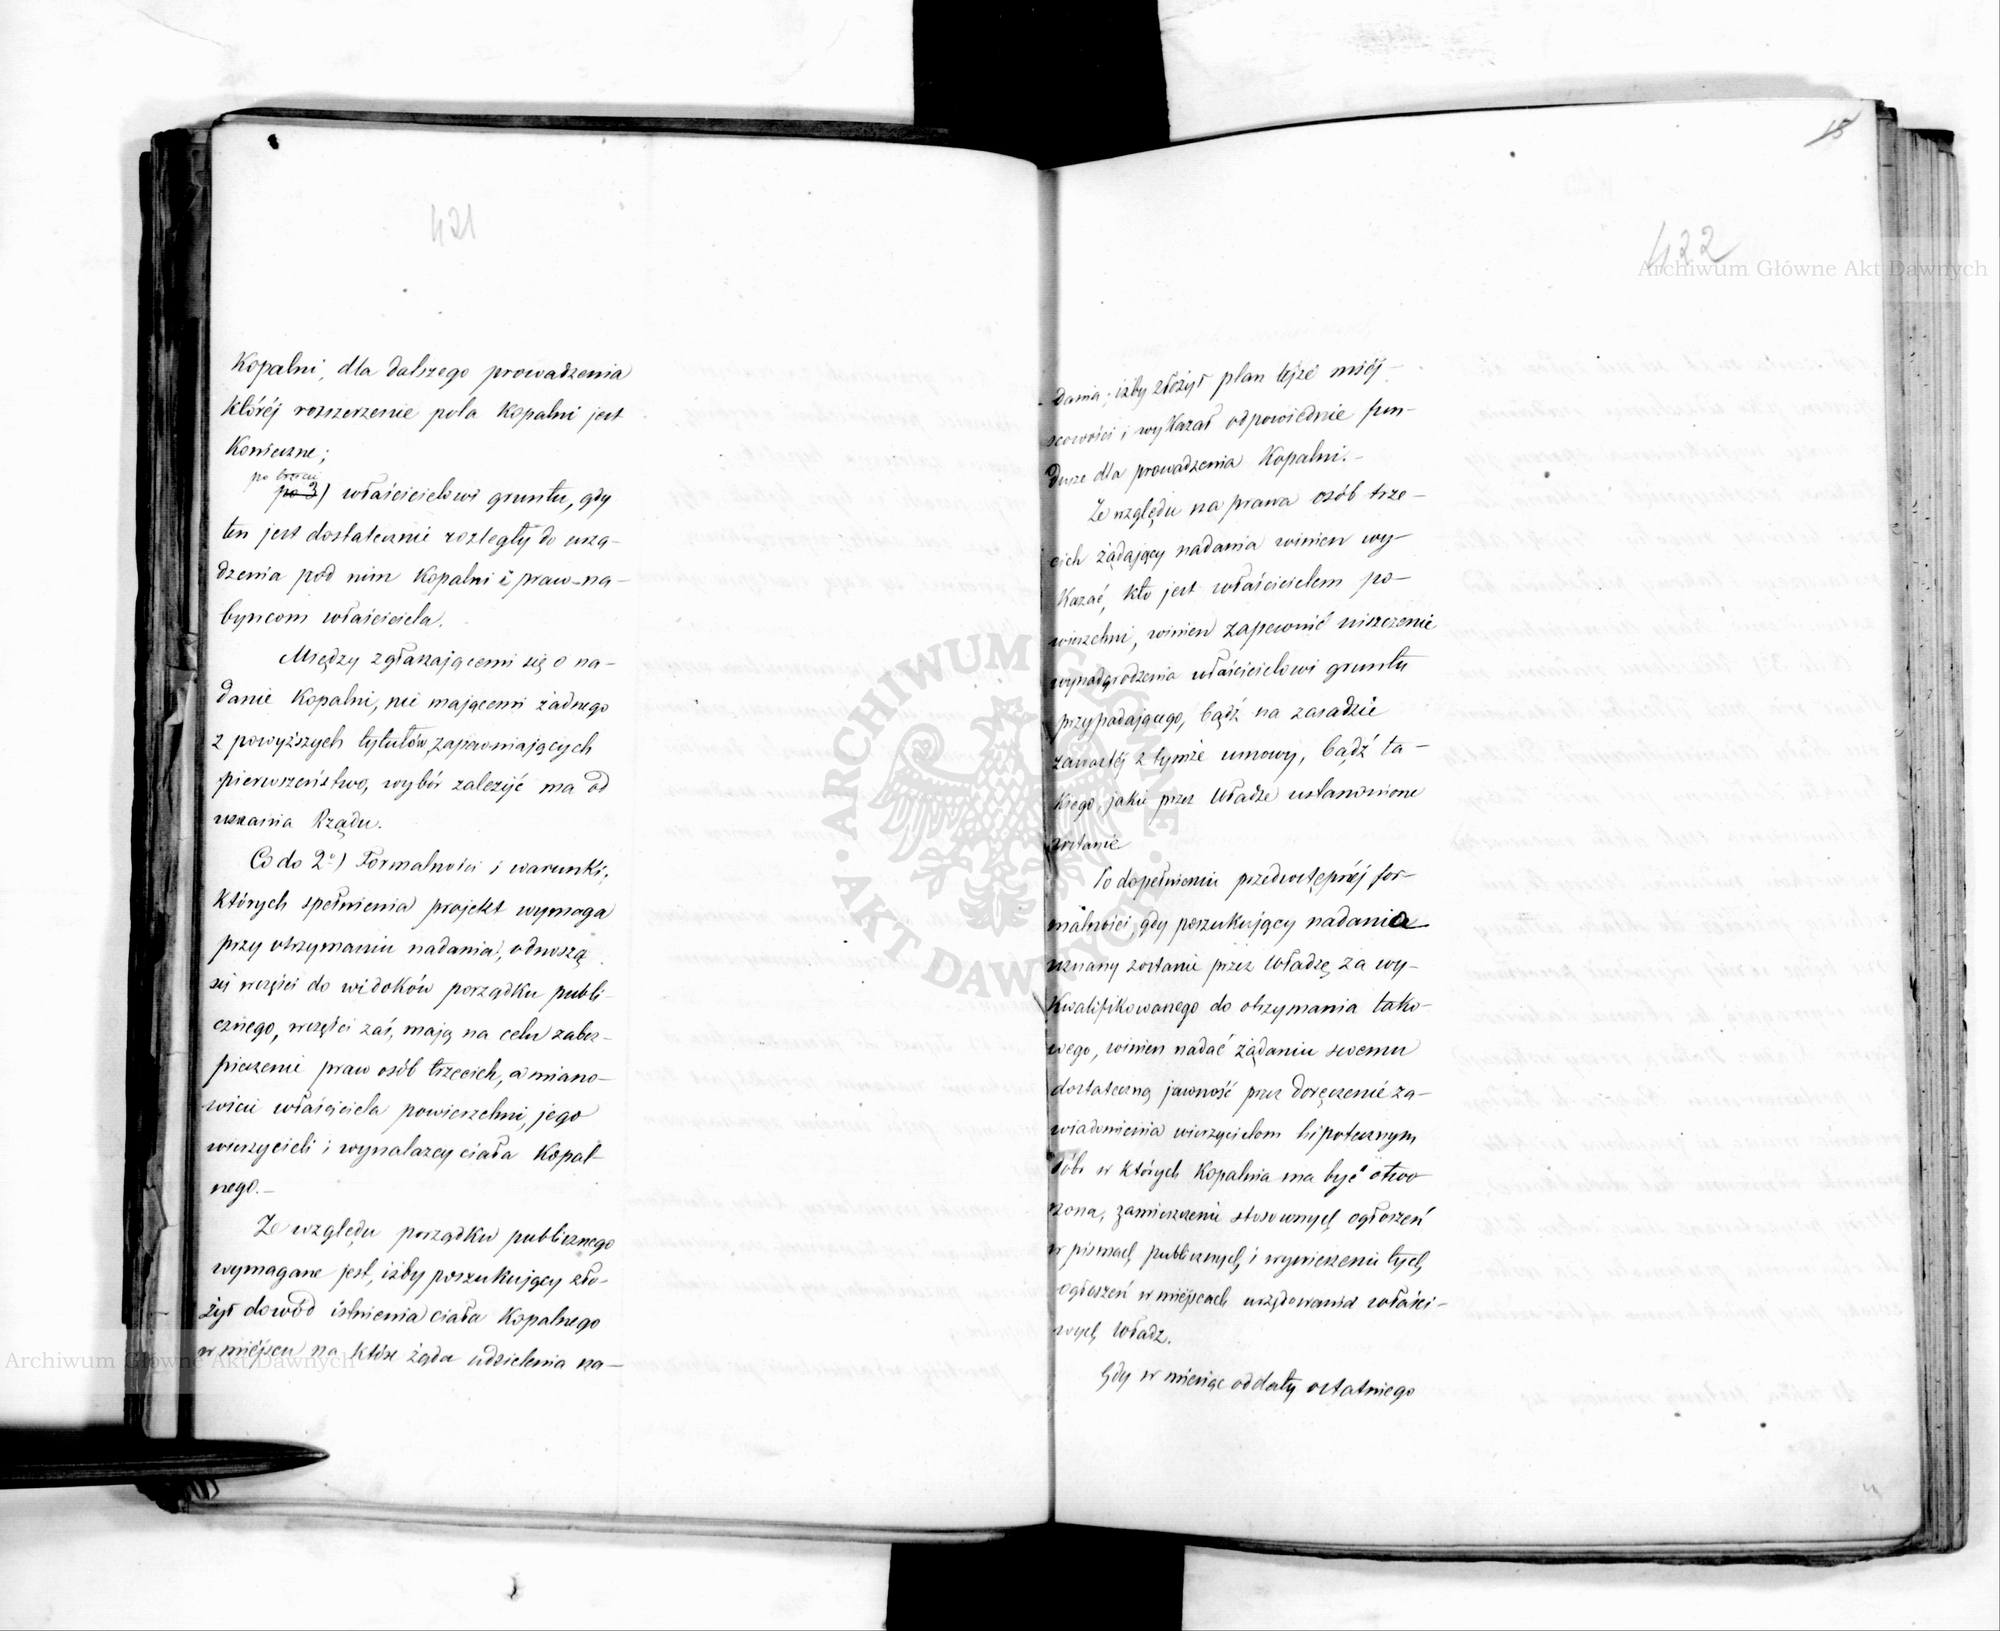 421
Kopalni, dla dalszego prowadzenia
któréj rozszerzenie pola Kopalni jest
Konieczne;
po trzecie
po 3) właścicielowi gruntu, gdy
ten jest dostatecznie rozległy do urzą-
dzenia pod nim Kopalni i praw-na-
bywcom właściciela.
Między zgłaszającemi się o na-
danie Kopalni, nie mającemi żadnego
z powyższych tytułów, zapewniających
pierwszeństwo, wybór zależyć ma od
uznania Rządu.
Co do 2°) Formalności i warunki,
których spełnienia projekt wymaga
przy otrzymaniu nadania, odnoszą
się wczęści do widoków porządku publi-
cznego, wczęści zaś, mają na celu zabez-
pieczenie praw osób trzecich, a miano-
wicie właściciela powierzchni, jego
wierzycieli i wynalazcy ciała Kopal-
nego.-
Ze względu porządku publicznego
wymagane jest, iżby poszukujący zło-
żył dowód istnienia ciała Kopalnego
w miéjscu na które żąda udzielenia na-
15
422
dania; iżby złożył plan téjże miéj-
scowości i wykazał odpowiednie fun-
dusze dla prowadzenia Kopalni.-
Ze względu na prawa osób trze-
cich żądający nadania winien wy-
kazać, kto jest właścicielem po-
wierzchni, winien zapewnić uiszczenie
wynadgrodzenia właścicielowi gruntu
przypadającego, bądź na zasadzie
zawartéj z tymże umowy, bądź ta-
kiego, jakie przez Władze ustanowione
zostanie
Po dopełnieniu przedwstępnéj for-
malności, gdy poszukujący nadania
uznany zostanie przez Władzę za wy-
kwalifikowanego do otrzymania tako-
wego, winien nadać żądaniu swemu
dostateczną jawność przez doręczenie za-
wiadomienia wierzycielom hipotecznym
dóbr w których Kopalnia ma być otwo-
rzona, zamieszczenie stosownych ogłoszeń
w pismach publicznych, i wywieszenie tych
ogłoszeń w miejscach urzędowania właści-
wych Władz.
Gdy w miesiąc od daty ostatniego
Archiwum Główne Akt Dawnych
Archiwum Główne Akt Dawnych
ARCHIWUM GŁÓWNE
AKT DAWNYCH